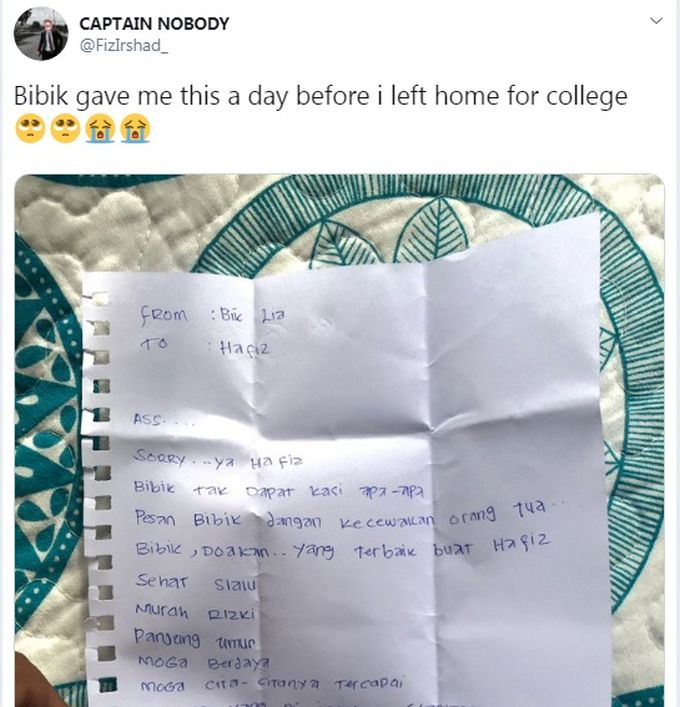 CAPTAIN NOBODY
@FizIrshad_
Bibik gave me this a day before i left home for college
🥺🥺😭😭
FROM : Bik Lia
TO : Hafiz
ASS....
SORRY...ya Hafiz
Bibik tak Dapat kasi apa-apa
Pesan Bibik Jangan kecewakan orang tua..
Bibik, DOakan.. yang terbaik buat Hafiz
Sehat slalu
Murah RIZKI
Panjang umur
MOGA Berjaya
MOGA cita-citanya Tercapai